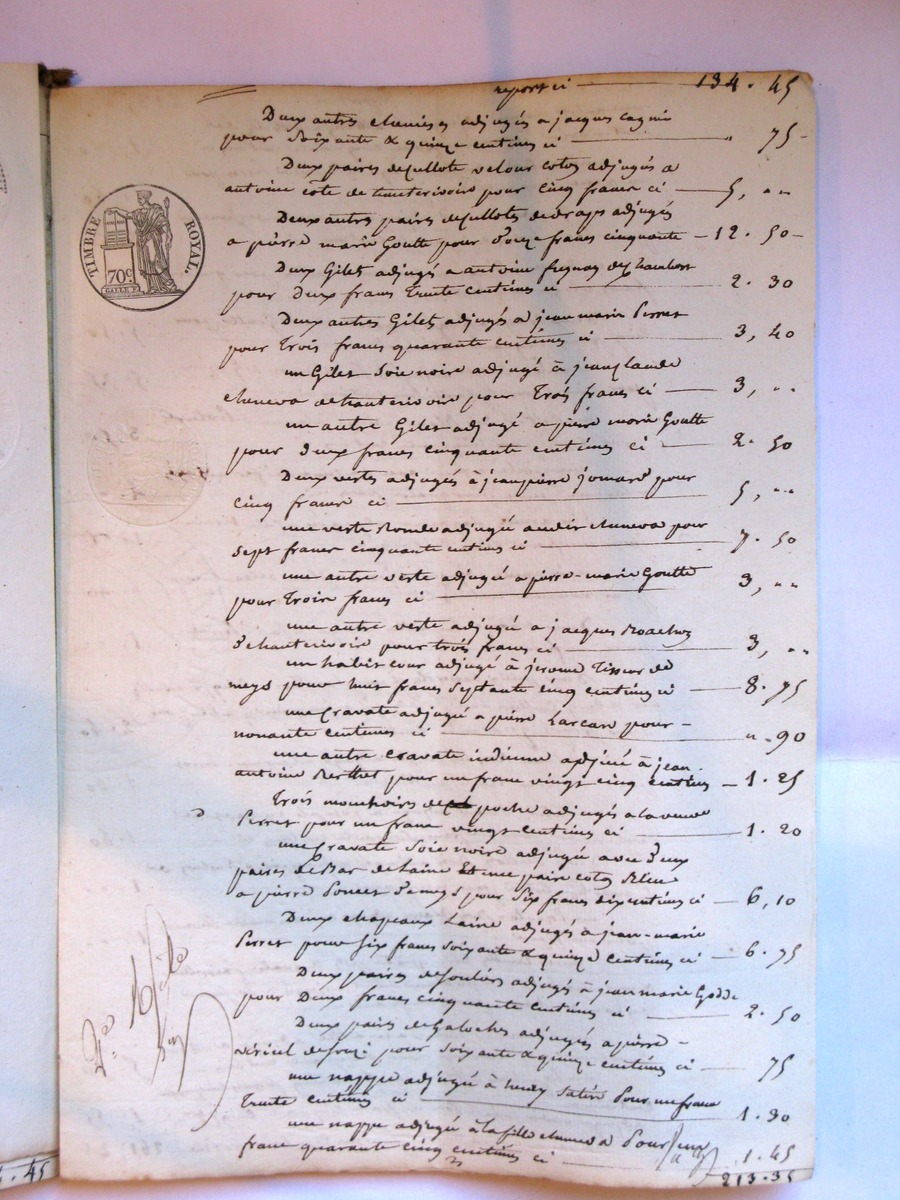 report ci 134. 45
Deux autres chemises adjugés a jacques
pour soixante & quinze centimes ci " 75
Deux paires de cullote velour coton adjugés a
antoine cote de pour Cinq francs ci 5, " "
Deux autres paires de cullotes de draps adjugés
a pierre marie Goutte pour Douze francs cinquante 12. 50
Deux Gilet adjugés a antoine
pour Deux francs Trente Centimes ci 2. 30
Deux autres Gilets adjugés a jean marie Perret
pour Trois francs quarante centimes ci 3, 40
un Gilet Soie noire adjugé à jean Claude
de hauterivoire pour Trois francs ci 3, " "
un autre Gilet adjugé a pierre marie Goutte
pour Deux francs Cinquante centimes ci 2. 50
Deux vestes adjugés à jean pierre jomard pour
Cinq francs ci 5, " "
une veste Ronde adjugé pour
sept francs cinquante centimes ci 7. 50
une autre veste adjugée a pierre-marie Goutte
pour Trois francs ci 3, " "
une autre veste adjugée a jacques
D'hauterivoire pour trois francs ci 3, " "
un habit cour adjugé à jerome Tisseur de
meys pour huit francs septante cinq centimes ci 8. 75
une Cravate adjugée a pierre pour
nonante centimes ci " . 90
une autre Cravate indienne adjugé à jean
antoine Berthet pour un franc vingt cinq centimes 1. 25
Trois mouchoirs de poche adjugés a la veuve
Perret pour un franc vingt centimes ci 1. 20
une Cravate Soie noire adjugée avec Deux
paires de Bas de Laine Et une paire coton Bleu
a pierre Poncet de meys pour Six francs dix centimes ci 6, 10
Deux chapeaux Laine adjugés à jean-marie
Perret pour Six francs soixante & quinze Centimes ci 6. 75
Deux paires de Souliers adjugés à jean marie
pour Deux francs Cinquante Centimes ci 2. 50
Deux paires de Galoches adjugés a pierre
pour soixante & quinze centimes ci 75
une nappe adjugée à Pour un franc
Trente Centimes ci 1. 30
une nappe adjugée à la fille Pour un
franc quarante cinq centimes ci 1. 45
213. 35
TIMBRE ROYAL.
70c.